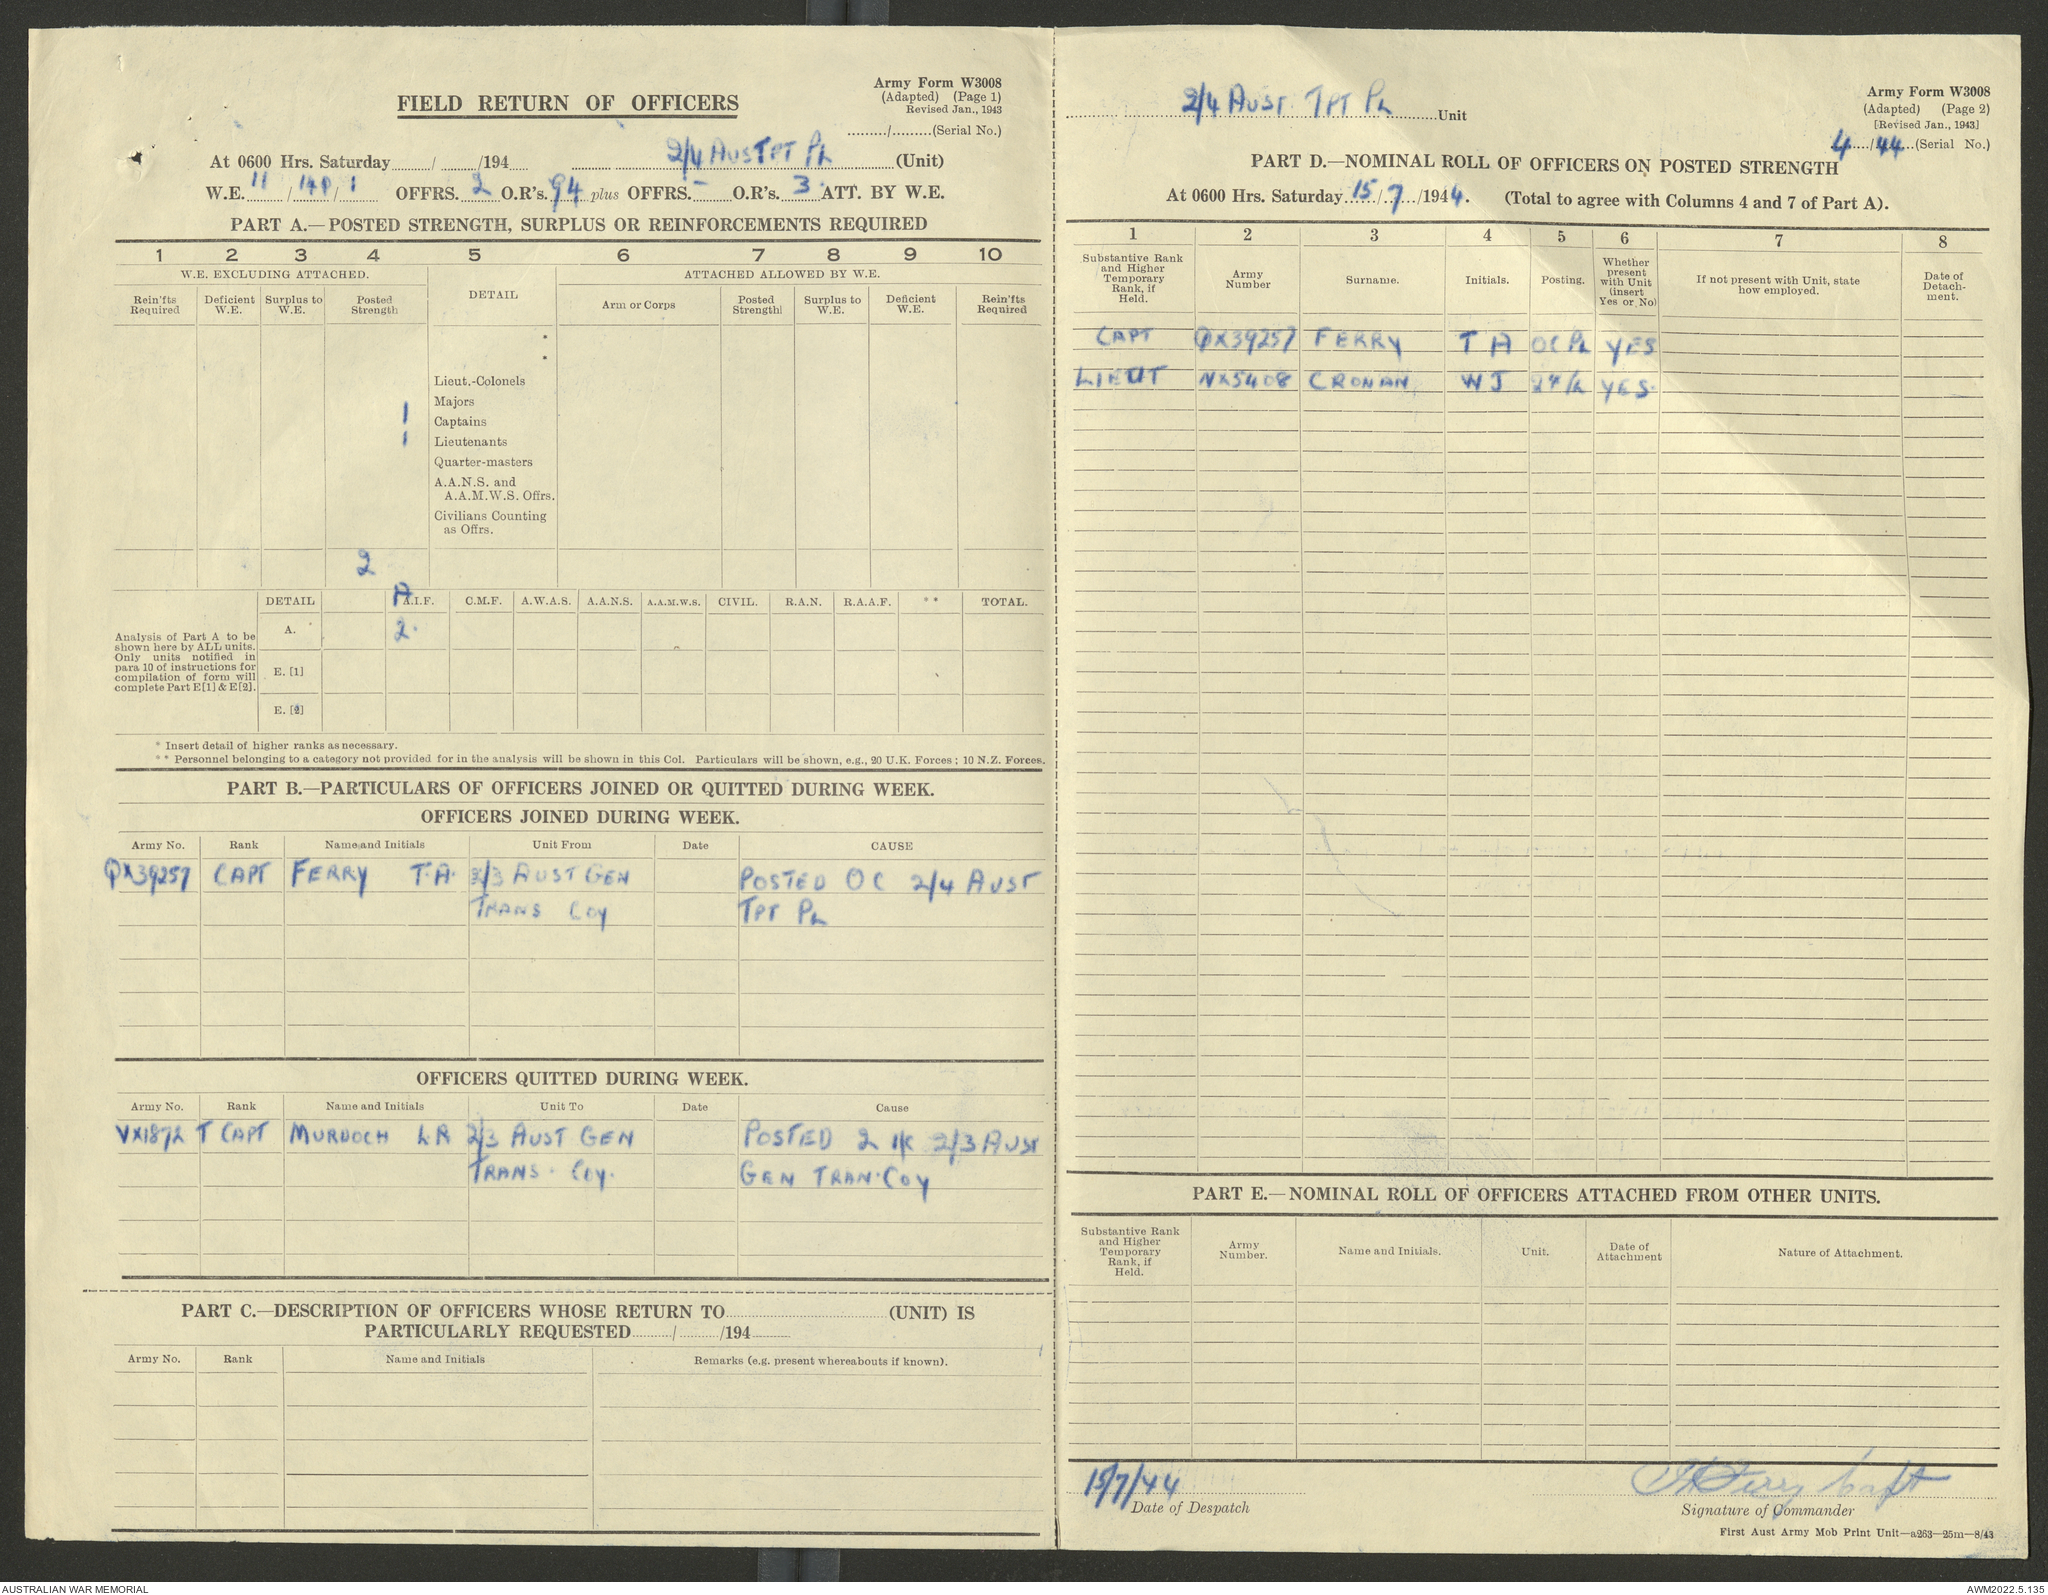 Army Form W3008
(Adapted) (Page 1)
Revised Jan., 1943
FIELD RETURN OF OFFICERS
........./.........(Serial No.)
At 0600 Hrs. Saturday......./......../194.... 2/4 AUST TPT PL (Unit)
W.E. 11 / 14P / 1 OFFRS. 2 O.R's. 94 plus OFFRS. - O.R's. 3 ATT. BY W.E.
PART A.—POSTED STRENGTH, SURPLUS OR REINFORCEMENTS REQUIRED
1 2 3 4 5 6 7 8 9 10
W.E. EXCLUDING ATTACHED. DETAIL ATTACHED ALLOWED BY W.E.
Rein'fts Required Deficient W.E. Surplus to W.E. Posted Strength Arm or Corps Posted Strength Surplus to W.E. Deficient W.E. Rein'fts Required
*
*
Lieut.-Colonels
Majors
1 Captains
1 Lieutenants
Quarter-masters
A.A.N.S. and
A.A.M.W.S. Offrs.
Civilians Counting
as Offrs.
2
DETAIL A A.I.F. C.M.F. A.W.A.S. A.A.N.S. A.A.M.W.S. CIVIL. R.A.N. R.A.A.F. ** TOTAL.
A. 2.
Analysis of Part A to be
shown here by ALL units.
Only units notified in
para 10 of instructions for
compilation of form will
complete Part E[1] & E[2].
E. [1]
E. [2]
* Insert detail of higher ranks as necessary.
** Personnel belonging to a category not provided for in the analysis will be shown in this Col. Particulars will be shown, e.g., 20 U.K. Forces; 10 N.Z. Forces.
PART B.—PARTICULARS OF OFFICERS JOINED OR QUITTED DURING WEEK.
OFFICERS JOINED DURING WEEK.
Army No. Rank Name and Initials Unit From Date CAUSE
QX39257 CAPT FERRY T.A. 2/3 AUST GEN POSTED OC 2/4 AUST
TRANS COY TPT PL
OFFICERS QUITTED DURING WEEK.
Army No. Rank Name and Initials Unit To Date Cause
VX1872 T CAPT MURDOCH LR 2/3 AUST GEN POSTED 2 I/C 2/3 AUST
TRANS. COY. GEN TRAN. COY
PART C.—DESCRIPTION OF OFFICERS WHOSE RETURN TO.................(UNIT) IS
PARTICULARLY REQUESTED........./........./194........
Army No. Rank Name and Initials Remarks (e.g. present whereabouts if known).
2/4 AUST. TPT PL Unit
Army Form W3008
(Adapted) (Page 2)
[Revised Jan., 1943]
4 / 44 (Serial No.)
PART D.—NOMINAL ROLL OF OFFICERS ON POSTED STRENGTH
At 0600 Hrs. Saturday 15 / 7 / 1944. (Total to agree with Columns 4 and 7 of Part A).
1 2 3 4 5 6 7 8
Substantive Rank and Higher Temporary Rank, if Held. Army Number Surname. Initials. Posting. Whether present with Unit (insert Yes or No) If not present with Unit, state how employed. Date of Detachment.
CAPT QX39257 FERRY T A OC PL YES
LIEUT NX5408 CRONAN WJ YES.
PART E.—NOMINAL ROLL OF OFFICERS ATTACHED FROM OTHER UNITS.
Substantive Rank and Higher Temporary Rank, if Held. Army Number. Name and Initials. Unit. Date of Attachment Nature of Attachment.
15/7/44
Date of Despatch
TA Ferry Capt
Signature of Commander
First Aust Army Mob Print Unit—a263—25m—8/43
AUSTRALIAN WAR MEMORIAL
AWM2022.5.135